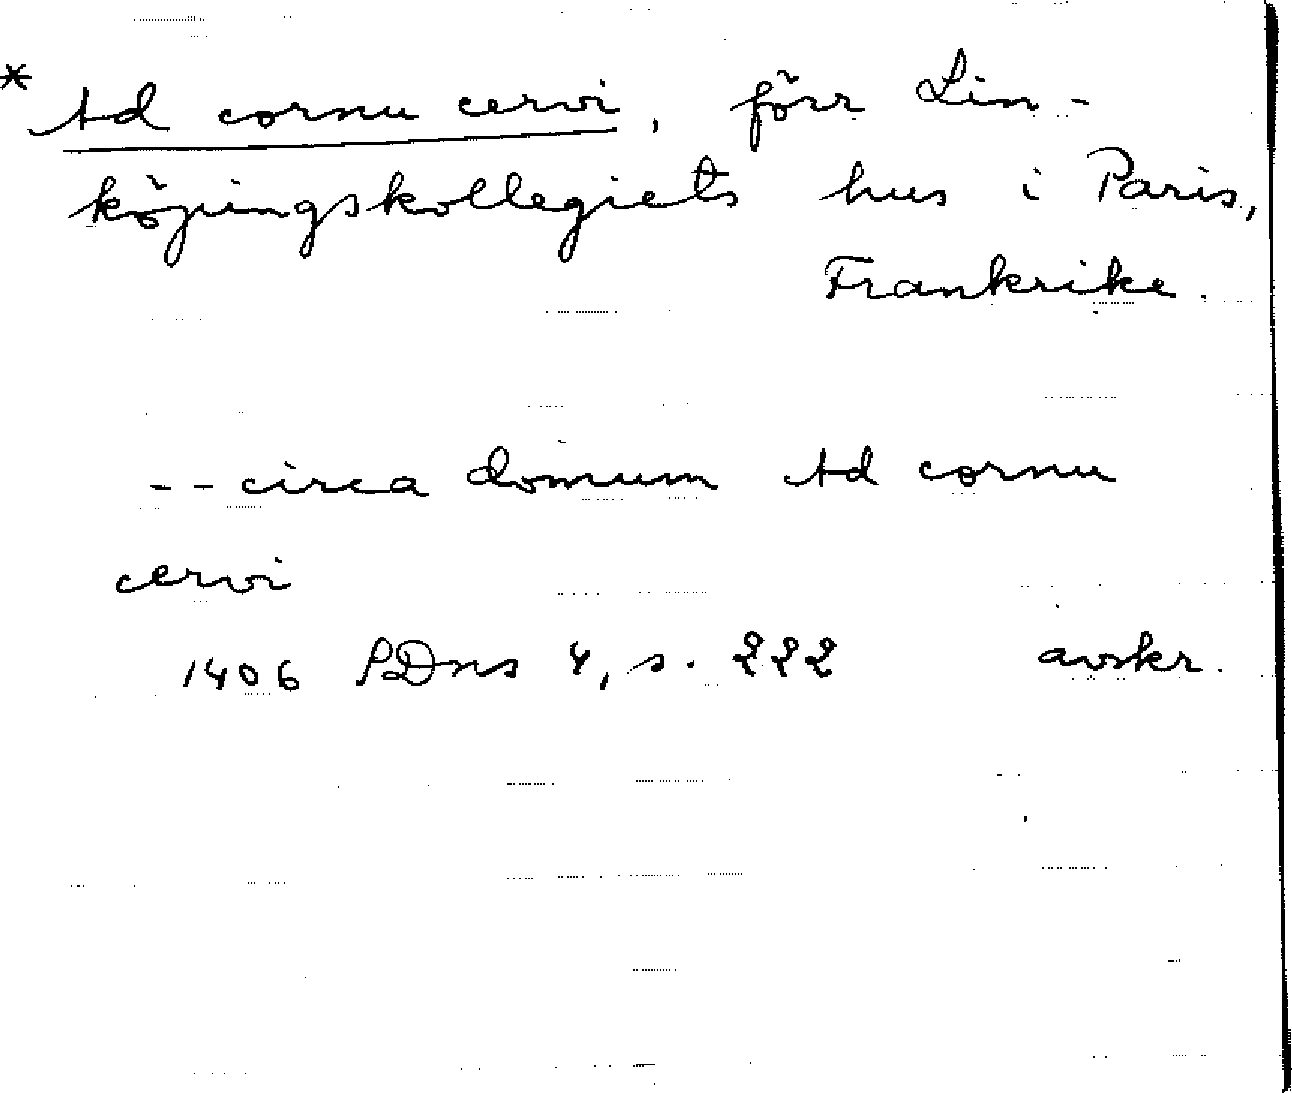 * Ad cornu cervi, förr Lin-
köpingskollegiets hus i Paris,
Frankrike.
-- circa domum Ad cornu
cervi
1406 SDns 4, s. 222 avskr.